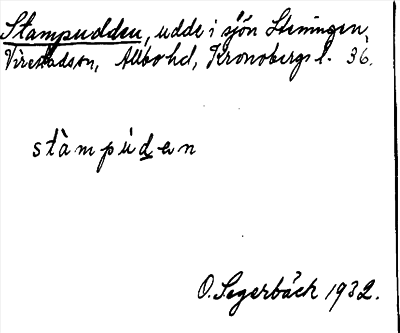 Stampudden, udde i sjön Steningen,
Virestadsn, Allbo hd, Kronobergs l. 36.
stàmpúden
O. Segerbäck 1932.